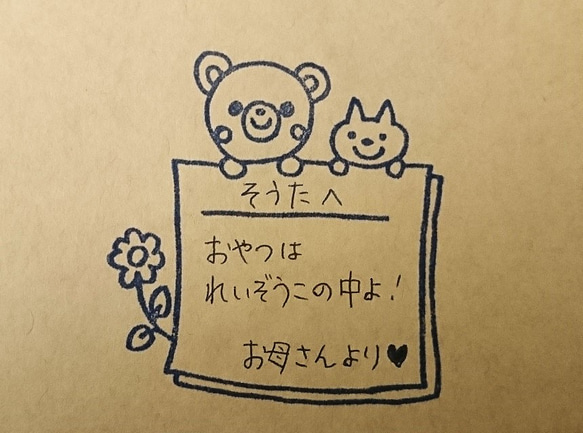 そうたへ
おやつは
れいぞうこの中よ!
お母さんより♥